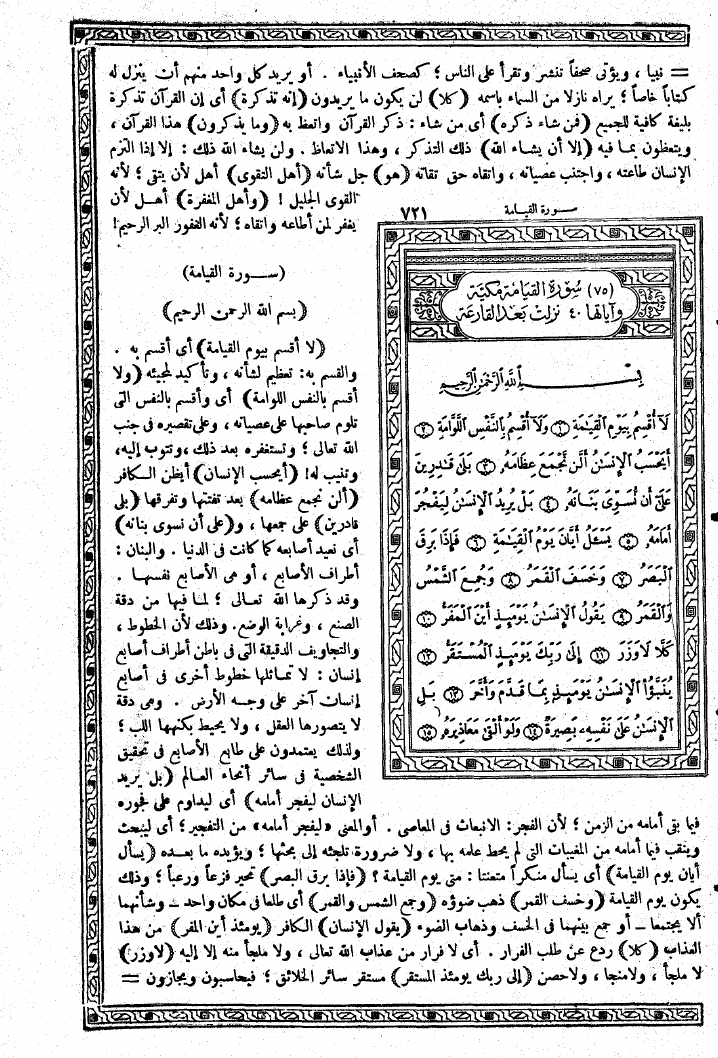 = نبيا ، ويؤتى صحفاً تنشر وتقرأ على الناس ؛ كصحف الأنبياء . أو يريد كل واحد منهم أن ينزل له
كتاباً خاصاً ؛ يراه نازلا من السماء باسمه (كلا) لن يكون ما يريدون (إنه تذكرة) أى إن القرآن تذكرة
بليغة كافية للجميع (فمن شاء ذكره) أى من شاء : ذكر القرآن واتعظ به (وما يذكرون) هذا القرآن ،
ويتعظون بما فيه (إلا أن يشاء الله) ذلك التذكر ، وهذا الاتعاظ . ولن يشاء الله ذلك : إلا إذا التزم
الإنسان طاعته ، واجتنب عصيانه ، واتقاه حق تقاته (هو) جل شأنه (أهل التقوى) أهل لأن يتقى ؛ لأنه
القوى الجليل ! (وأهل المغفرة) أهل لأن
يغفر لمن أطاعه واتقاه ؛ لأنه الغفور البر الرحيم!
(سورة القيامة)
(بسم الله الرحمن الرحيم)
(لا أقسم بيوم القيامة) أى أقسم به .
والقسم به : تعظيم لشأنه ، وتأكيد لمجيئه (ولا
أقسم بالنفس اللوامة) أى وأقسم بالنفس التى
تلوم صاحبها على عصيانه ، وعلى تقصيره فى جنب
الله تعالى ؛ وتستغفره بعد ذلك ، وتتوب إليه،
وتنيب له! (أيحسب الإنسان) أيظن الكافر
(ألن نجمع عظامه) بعد تفتتها وتفرقها (بلى
قادرين) على جمعها ، و(على أن نسوى بنانه)
أى نعيد أصابعه كما كانت فى الدنيا . والبنان :
أطراف الأصابع ، أو هى الأصابع نفسها .
وقد ذكرها الله تعالى ؛ لما فيها من دقة
الصنع ، وغرابة الوضع. وذلك لأن الخطوط ،
والتجاويف الدقيقة التى فى باطن أطراف أصابع
إنسان : لا تماثلها خطوط أخرى فى أصابع
إنسان آخر على وجه الأرض . وهى دقة
لا يتصورها العقل ، ولا يحيط بكنهها اللب ؛
ولذلك يعتمدون على طابع الأصابع فى تحقيق
الشخصية فى سائر أنحاء العالم (بل يريد
الإنسان ليفجر أمامه) أى ليداوم على فجوره
سورة القيامة
٧٢١
(٧٥) سُورَةُ القِيَامَة مَكِّيَّة
وَآيَاتُهَا ٤٠ نَزَلَتْ بَعْدَ القَارِعَة
بِسْمِ اللَّهِ الرَّحْمَٰنِ الرَّحِيمِ
لَآ أُقْسِمُ بِيَوْمِ ٱلْقِيَٰمَةِ ١ وَلَآ أُقْسِمُ بِٱلنَّفْسِ ٱللَّوَّامَةِ ٢
أَيَحْسَبُ ٱلْإِنسَٰنُ أَلَّن نَّجْمَعَ عِظَامَهُۥ ٣ بَلَىٰ قَٰدِرِينَ
عَلَىٰٓ أَن نُّسَوِّىَ بَنَانَهُۥ ٤ بَلْ يُرِيدُ ٱلْإِنسَٰنُ لِيَفْجُرَ
أَمَامَهُۥ ٥ يَسْـَٔلُ أَيَّانَ يَوْمُ ٱلْقِيَٰمَةِ ٦ فَإِذَا بَرِقَ
ٱلْبَصَرُ ٧ وَخَسَفَ ٱلْقَمَرُ ٨ وَجُمِعَ ٱلشَّمْسُ
وَٱلْقَمَرُ ٩ يَقُولُ ٱلْإِنسَٰنُ يَوْمَئِذٍ أَيْنَ ٱلْمَفَرُّ ١٠
كَلَّا لَا وَزَرَ ١١ إِلَىٰ رَبِّكَ يَوْمَئِذٍ ٱلْمُسْتَقَرُّ ١٢
يُنَبَّؤُا۟ ٱلْإِنسَٰنُ يَوْمَئِذٍۭ بِمَا قَدَّمَ وَأَخَّرَ ١٣ بَلِ
ٱلْإِنسَٰنُ عَلَىٰ نَفْسِهِۦ بَصِيرَةٌ ١٤ وَلَوْ أَلْقَىٰ مَعَاذِيرَهُۥ ١٥
فيما بقى أمامه من الزمن ؛ لأن الفجر : الانبعاث فى المعاصى . أو المعنى «ليفجر أمامه» من التفجير ؛ أى ليبحث
وينقب فيما أمامه من المغيبات التى لم يحط علمه بها ، ولا ضرورة تلجئه إلى بحثها ؛ ويؤيده ما بعده (يسأل
أيان يوم القيامة) أى يسأل منكراً متعنتا : متى يوم القيامة ؟ (فإذا برق البصر) تحير فزعاً ورعباً ؛ وذلك
يكون يوم القيامة (وخسف القمر) ذهب ضوؤه (وجمع الشمس والقمر) أى طلعا فى مكان واحد – وشأنهما
ألا يجتمعا – أو جمع بينهما فى الخسف وذهاب الضوء (يقول الإنسان) الكافر (يومئذ أين المفر) من هذا
العذاب (كلا) ردع عن طلب الفرار . أى لا فرار من عذاب الله تعالى ، ولا ملجأ منه إلا إليه (لاوزر)
لا ملجأ ، ولا منجا ، ولا حصن (إلى ربك يومئذ المستقر) مستقر سائر الخلائق ؛ فيحاسبون ويجازون =